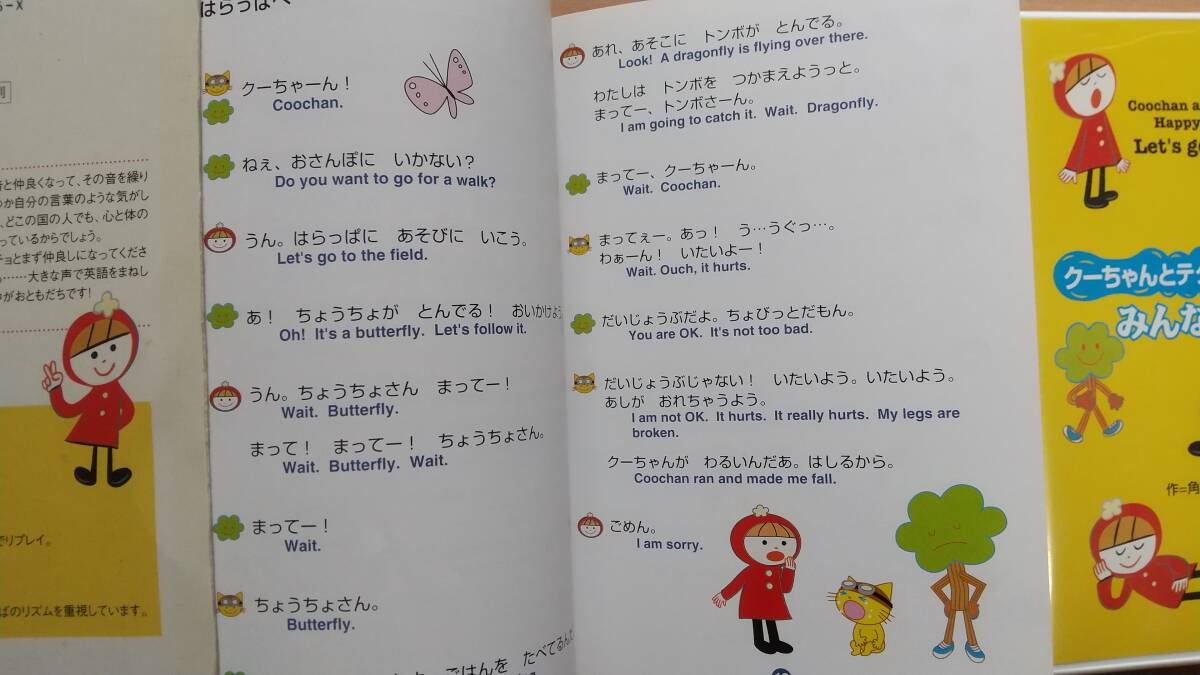 5-X
別
音と仲良くなって、その音を繰り
のか自分の言葉のような気がし
、どこの国の人でも、心と体の
っているからでしょう。
チョとまず仲良しになってくださ
……大きな声で英語をまねし
がおともだちです!
でリプレイ。
ばのリズムを重視しています。
はらっぱへ
クーちゃーん！
Coochan.
ねぇ、おさんぽに いかない？
Do you want to go for a walk?
うん。はらっぱに あそびに いこう。
Let's go to the field.
あ！ ちょうちょが とんでる！ おいかけよう
Oh! It's a butterfly. Let's follow it.
うん。ちょうちょさん まってー！
Wait. Butterfly.
まって！ まってー！ ちょうちょさん。
Wait. Butterfly. Wait.
まってー！
Wait.
ちょうちょさん。
Butterfly.
ごはんを たべてるんだ
あれ、あそこに トンボが とんでる。
Look! A dragonfly is flying over there.
わたしは トンボを つかまえようっと。
まってー、トンボさーん。
I am going to catch it. Wait. Dragonfly.
まってー、クーちゃーん。
Wait. Coochan.
まってぇー。あっ！ う…うぐっ…。
わぁーん！ いたいよー！
Wait. Ouch, it hurts.
だいじょうぶだよ。ちょびっとだもん。
You are OK. It's not too bad.
だいじょうぶじゃない！ いたいよう。いたいよう。
あしが おれちゃうよう。
I am not OK. It hurts. It really hurts. My legs are
broken.
クーちゃんが わるいんだあ。はしるから。
Coochan ran and made me fall.
ごめん。
I am sorry.
Coochan a
Happy
Let's go
クーちゃんとテ
みんな
作=角